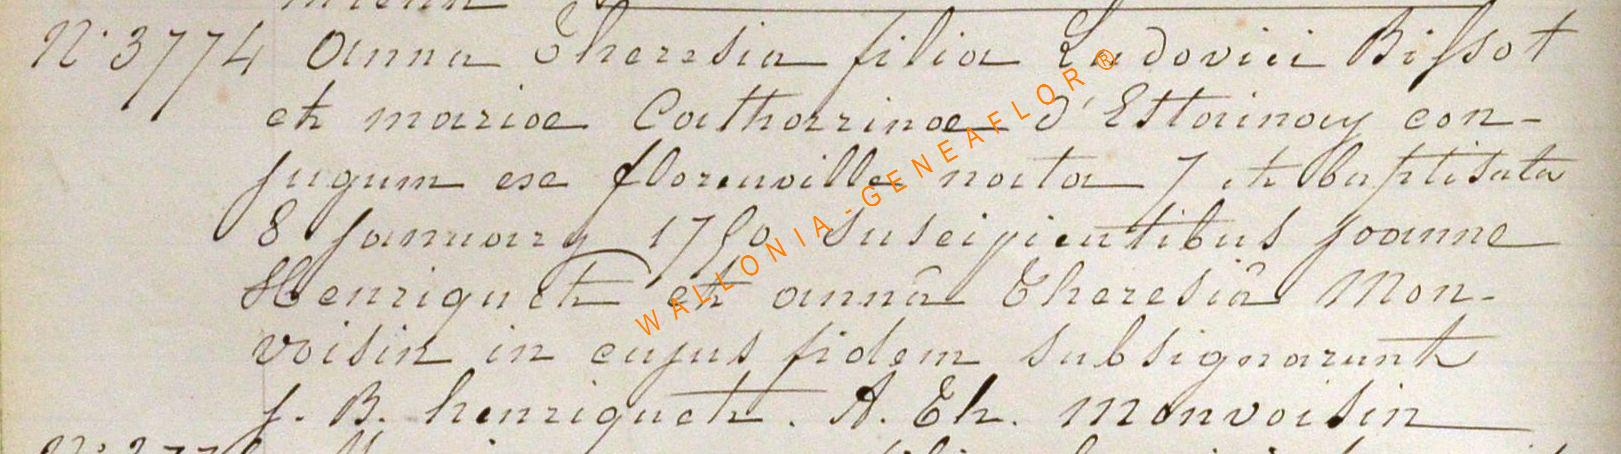 N° 3774 Anna Theresia filia Ludovici Bissot
et mariae Catharrinae d'Estainay con-
jugum ex florenville nata 7 et baptisata
8 january 1750 suscipientibus joanne
Henriquet et annâ Theresiâ Mon-
voisin in cujus fidem subsignarunt
j. B. henriquet. A. Th. Monvoisin
WALLONIA-GENEAFLOR ®